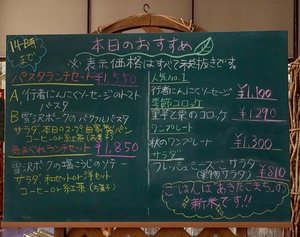 14時まで
本日のおすすめ
※表示価格はすべて税抜きです。
パスタランチセット ¥1,550
A 行者にんにくソーセージのトマトパスタ
B 雪沢ポークの
パスタ
サラダ 本日のスープ 自家製パン
コーヒーor紅茶(お菓子)
きまぐれランチセット ¥1,850
雪沢ポークの塩こうじのソテー
サラダ 和セットor洋セット
コーヒーor紅茶(お菓子)
人気No.1
行者にんにくソーセージ ¥1,100
季節コロッケ
里芋と栗のコロッケ ¥1,290
ワンプレート
秋のワンプレート ¥1,300
サラダ
フレッシュ サラダ
(果物サラダ) ¥810
ごはんはあきたこまちの
新米です!!